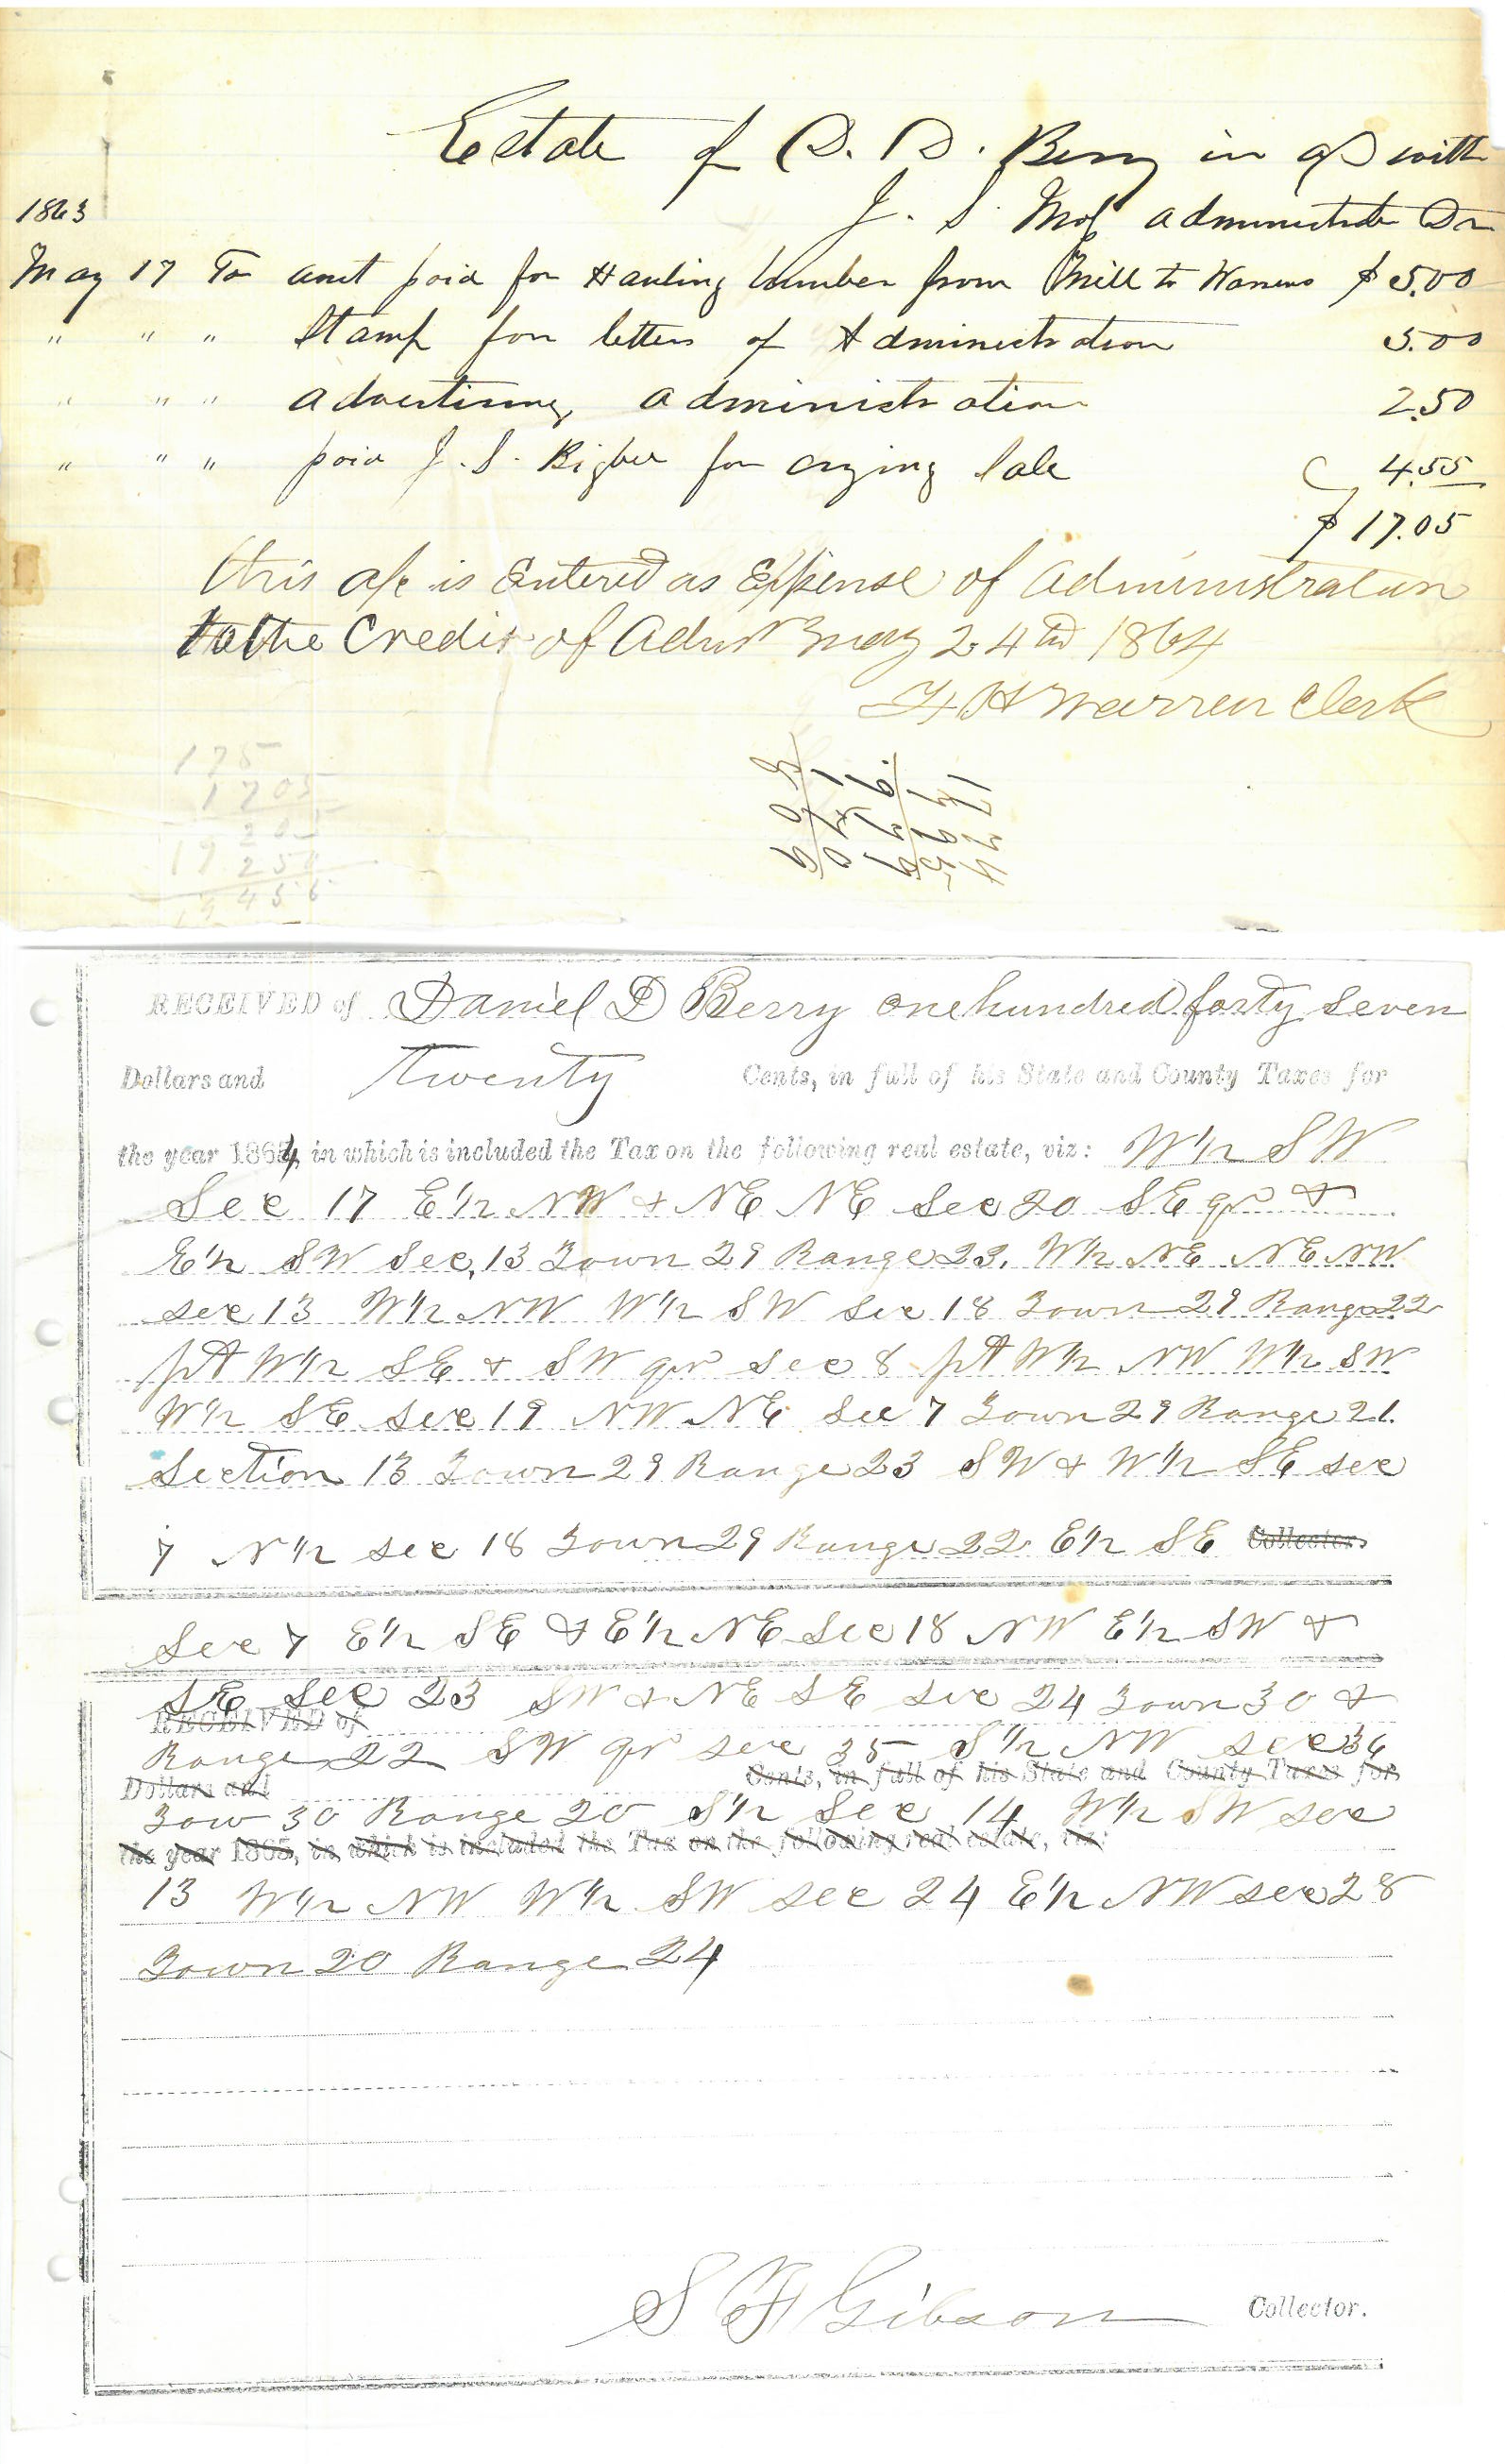 Estate of D. D. Berry in a/c with
1863
J. S. Moss administrator Dr
May 17 To amt paid for Hauling lumber from Mill to Warrens $ 5.00
" " " Stamp for letters of Administration 5.00
" " " advertising administration 2.50
" " " paid J. S. Bigbee for crying Sale 4.55
$ 17.05
this a/c is Entered as Expense of Administration
to the Credit of Admr May 24th 1864
H Warren Clerk
175
1705
RECEIVED of Daniel D Berry one hundred forty seven
Dollars and twenty Cents, in full of his State and County Taxes for
the year 1864, in which is included the Tax on the following real estate, viz: W1/2 SW
Sec 17 E1/2 NW & NE NE Sec 20 SE qr &
E1/2 SW Sec, 13 Town 29 Range 23. W1/2 NE NE NW
sec 13 W1/2 NW W1/2 SW Sec 18 Town 29 Range 22
pt W1/2 SE & SW qr sec 8 pt W1/2 NW W1/2 SW
W1/2 SE sec 19 NW NE Sec 7 Town 29 Range 21.
Section 13 Town 29 Range 23 SW & W1/2 SE sec
7 N1/2 sec 18 Town 29 Range 22 E1/2 SE Collector.
Sec 7 E1/2 SE & E1/2 NE Sec 18 NW E1/2 SW &
SE Sec 23 SW & NE SE sec 24 Town 30 &
RECEIVED of
Range 22 SW qr sec 35 S1/2 NW sec 36
Dollars and Cents, in full of his State and County Taxes for
Tow 30 Range 20 S1/2 Sec 14 W1/2 SW sec
the year 1865, in which is included the Tax on the following real estate, viz:
13 W1/2 NW W1/2 SW sec 24 E1/2 NW sec 28
Town 20 Range 24
Gibson Collector.